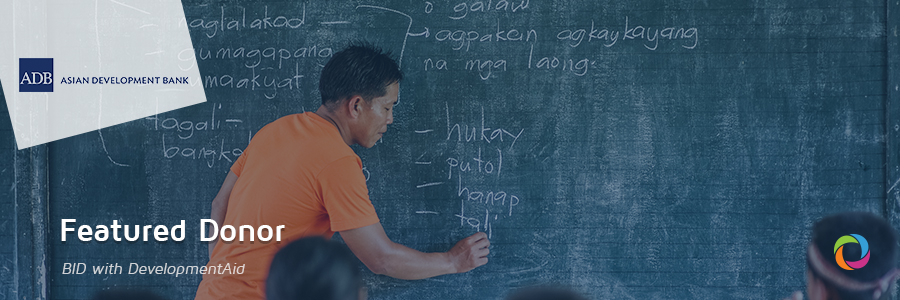 ADB ASIAN DEVELOPMENT BANK
naglalakad —
o galaw
agpakain agkaykayang
gumagapang
na mga laong:
maakyat
tagali-
bangka
- hukay
- putol
- hanap
- tali
Featured Donor
BID with DevelopmentAid